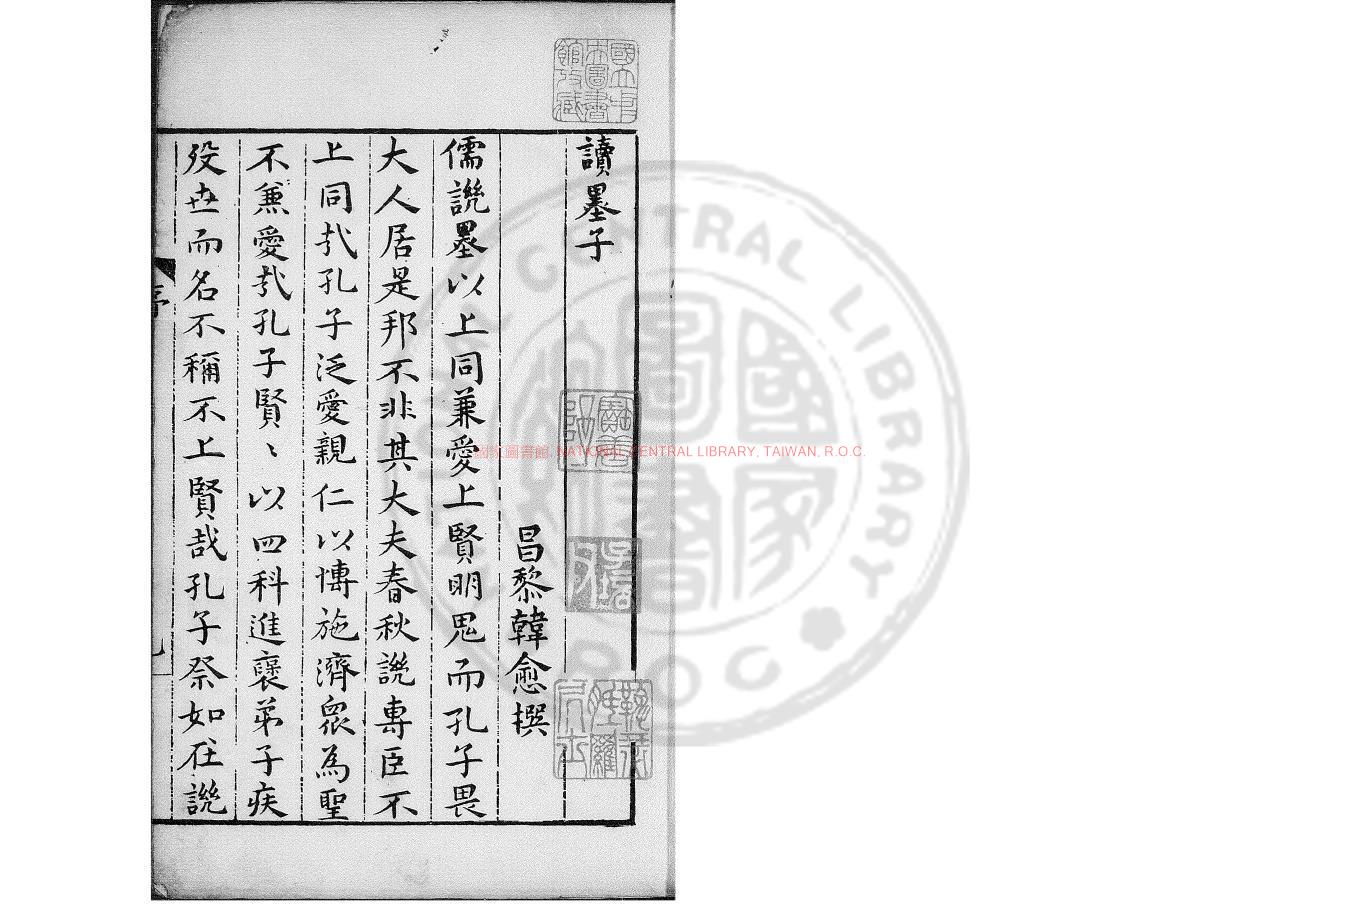 讀墨子
昌黎韓愈撰
儒譏墨以上同兼愛上賢明鬼而孔子畏
大人居是邦不非其大夫春秋譏專臣不
上同㢤孔子泛愛親仁以愽施濟眾為聖
不兼愛㢤孔子賢〻以四科進襃弟子疾
歿世而名不稱不上賢哉孔子祭如在譏
序
國立中央圖書館收藏
國家圖書館, NATIONAL CENTRAL LIBRARY, TAIWAN, R.O.C.
NATIONAL CENTRAL LIBRARY
R.O.C.
國家圖書館